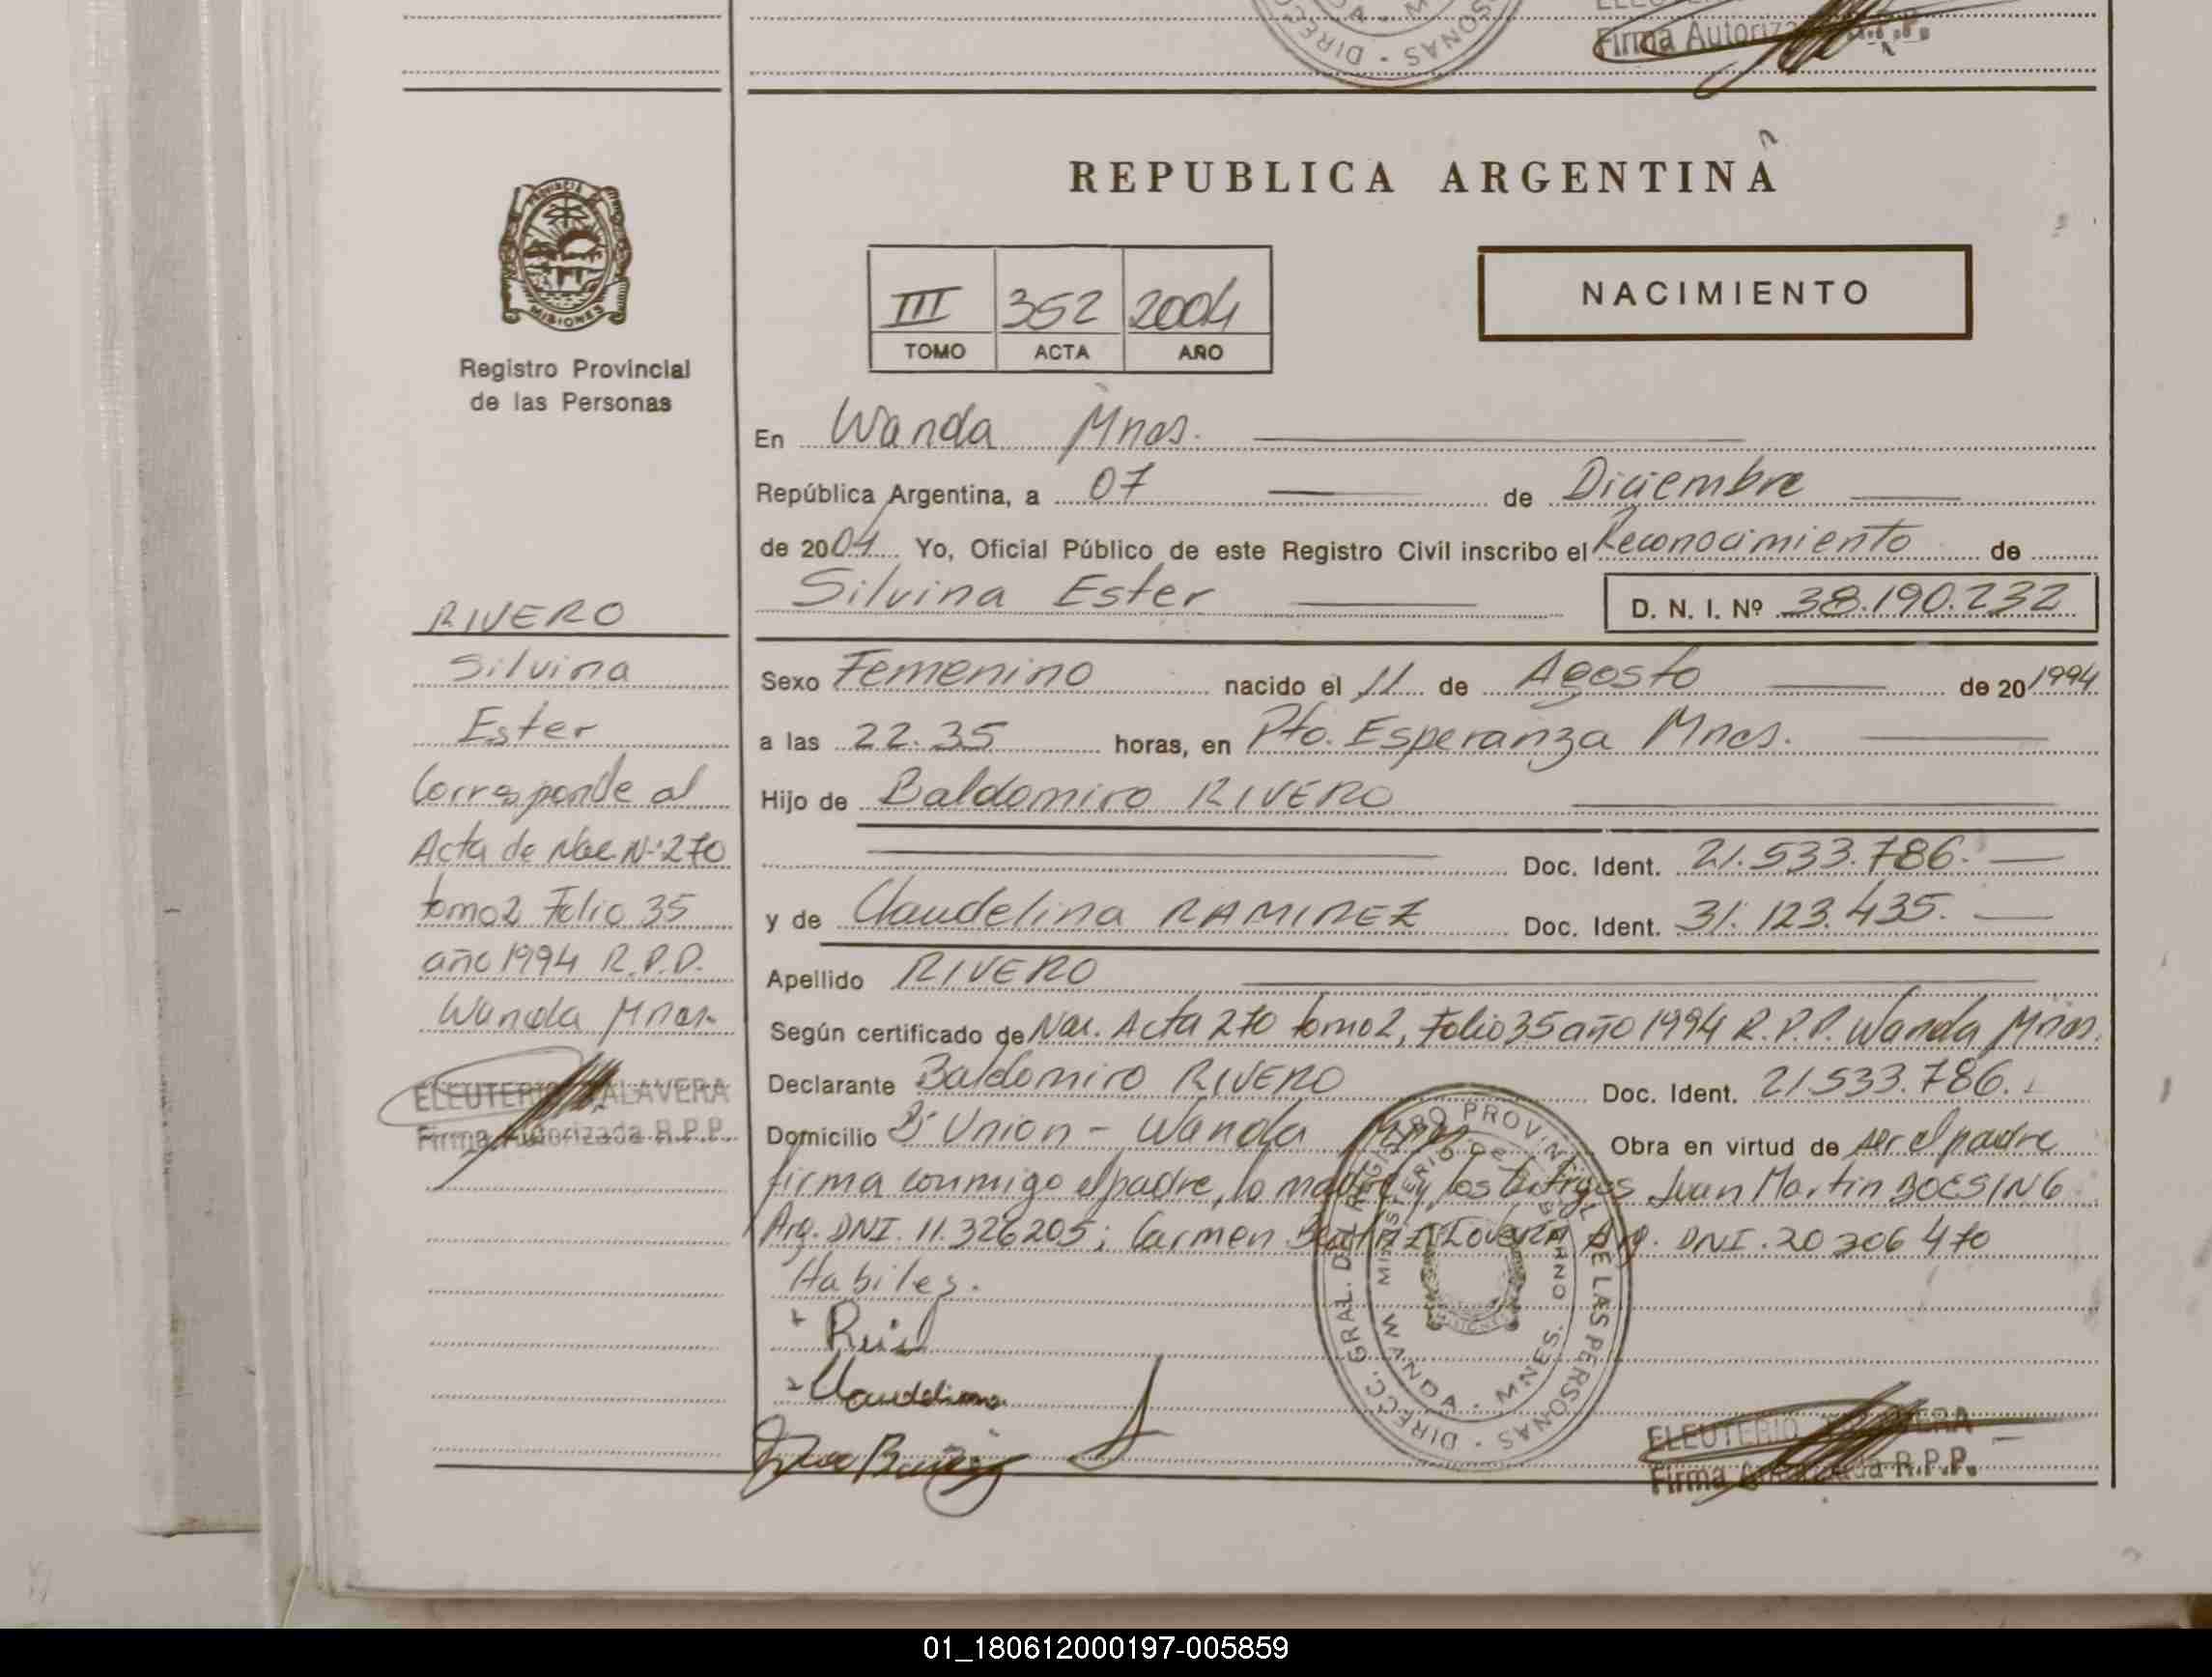 Firma Autoriz
DIRECC
ONAS
PROVINCIA
MISIONES
Registro Provincial
de las Personas
REPUBLICA ARGENTINA
NACIMIENTO
III 352 2004
TOMO ACTA AÑO
En Wanda Mnes.
República Argentina, a 07 de Diciembre
de 2004 Yo, Oficial Público de este Registro Civil inscribo el Reconocimiento de
Silvina Ester D. N. I. Nº 38.190.232
Sexo Femenino nacido el 11 de Agosto de 20 1994
a las 22.35 horas, en Pto. Esperanza Mnes.
Hijo de Baldomiro RIVERO
Doc. Ident. 21.533.786.
y de Claudelina RAMIREZ Doc. Ident. 31.123.435.
Apellido RIVERO
Según certificado de Nac. Acta 270 tomo 2, Folio 35 año 1994 R.P.P. Wanda Mnes.
Declarante Baldomiro RIVERO Doc. Ident. 21.533.786.
Domicilio Bº Union - Wanda Mnes Obra en virtud de ser el padre
firma conmigo el padre, la madre y los testigos Juan Martin BOESING
Arg. DNI. 11.326205; Carmen Beatriz Arg. DNI. 20 306 470
Habiles.
Claudelina
RIVERO
Silvina
Ester
Corresponde al
Acta de Nac Nº 270
tomo 2 Folio 35
año 1994 R.P.P.
Wanda Mnes.
ELEUTERIO TALAVERA
Firma Autorizada R.P.P.
DIRECC. GRAL. DEL REGISTRO PROVINCIAL DE LAS PERSONAS
MINISTERIO DE GOBIERNO
WANDA - MNES.
ELEUTERIO TALAVERA
Firma Autorizada R.P.P.
01_180612000197-005859